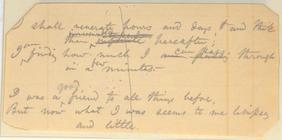 I shall venerate hours and days, and think
them hereafter;
I am finding how much I can pass through
in a few minutes.
I was a good friend to all things before,
But now what I was seems to me limpsey
and little.